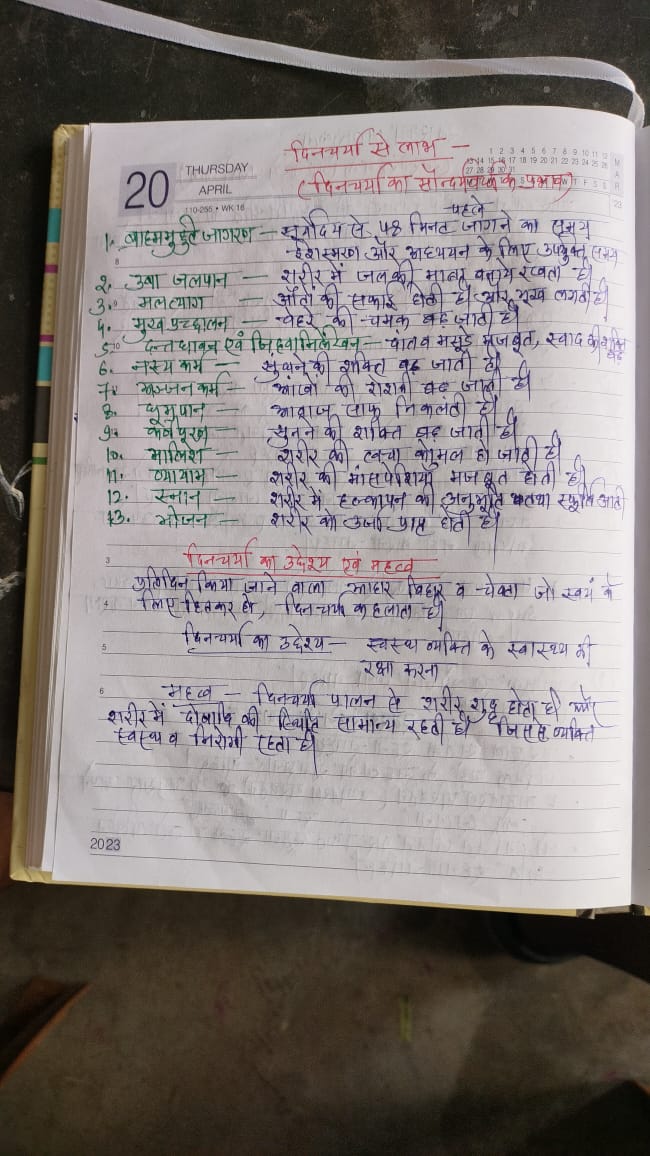 दिनचर्या से लाभ —
(दिनचर्या का सौन्दर्य के प्रभाव)
20
THURSDAY
APRIL
110-255 • WK 16
1 2 3 4 5 6 7 8 9 10 11 12
13 14 15 16 17 18 19 20 21 22 23 24 25 26
27 28 29 30 31
M A R
23
पहले
1. ब्राह्ममुहूर्त जागरण — सूर्योदय से 48 मिनट जागने का समय
ईशस्मरण और अध्ययन के लिए उपयुक्त समय
2. उषा जलपान — शरीर में जल की मात्रा बनाये रखता है।
3. मलत्याग — आँतों की सफाई होती है। और भूख लगती है।
4. मुख प्रच्छालन — चेहरे की चमक बढ़ जाती है।
5. दन्तधावन एवं जिह्वानिर्लेखन — दांत व मसूड़े मजबूत, स्वाद की शक्ति बढ़े
6. नस्य कर्म — सूंघने की शक्ति बढ़ जाती है।
7. अञ्जन कर्म — आंखों की रोशनी बढ़ जाती है।
8. धूमपान — आवाज साफ निकलती है।
9. कर्णपूरण — सुनने की शक्ति बढ़ जाती है।
10. मालिश — शरीर की त्वचा कोमल हो जाती है
11. व्यायाम — शरीर की मांसपेशियां मजबूत होती है।
12. स्नान — शरीर में हल्कापन की अनुभूति तथा स्फूर्ति आती
13. भोजन — शरीर को उर्जा प्राप्त होती है।
दिनचर्या का उद्देश्य एवं महत्व
प्रतिदिन किया जाने वाला आहार विहार व चेष्टा जो स्वयं के
लिए हितकर हो, दिनचर्या कहलाता है।
दिनचर्या का उद्देश्य — स्वस्थ व्यक्ति के स्वास्थ्य की
रक्षा करना
महत्व — दिनचर्या पालन से शरीर शुद्ध होता है। और
शरीर में दोषादि की स्थिति सामान्य रहती है। जिससे व्यक्ति
स्वस्थ व निरोगी रहता है।
2023